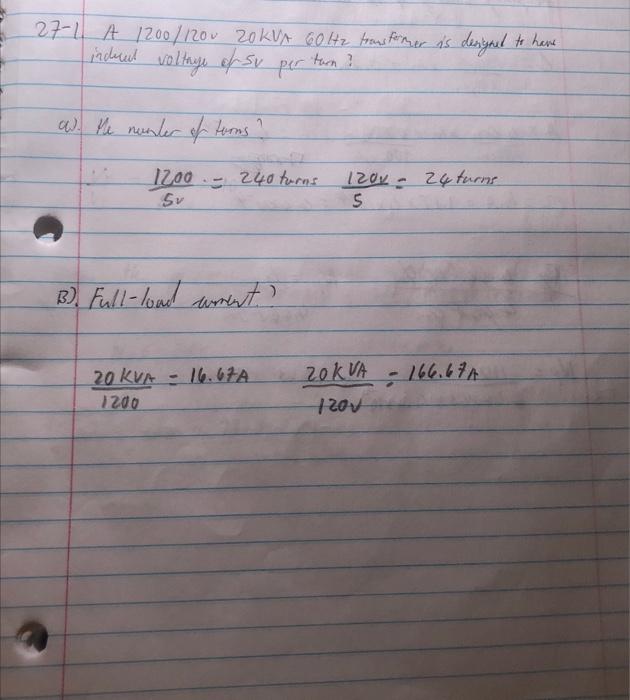 27-1. A 1200/120v 20KVA 60Hz transformer is designed to have
induced voltage of 5v per turn?
a). The number of turns?
1200/5v = 240turns 120v/5 = 24turns
B). Full-load current?
20KVA/1200 = 16.67A 20KVA/120V = 166.67A